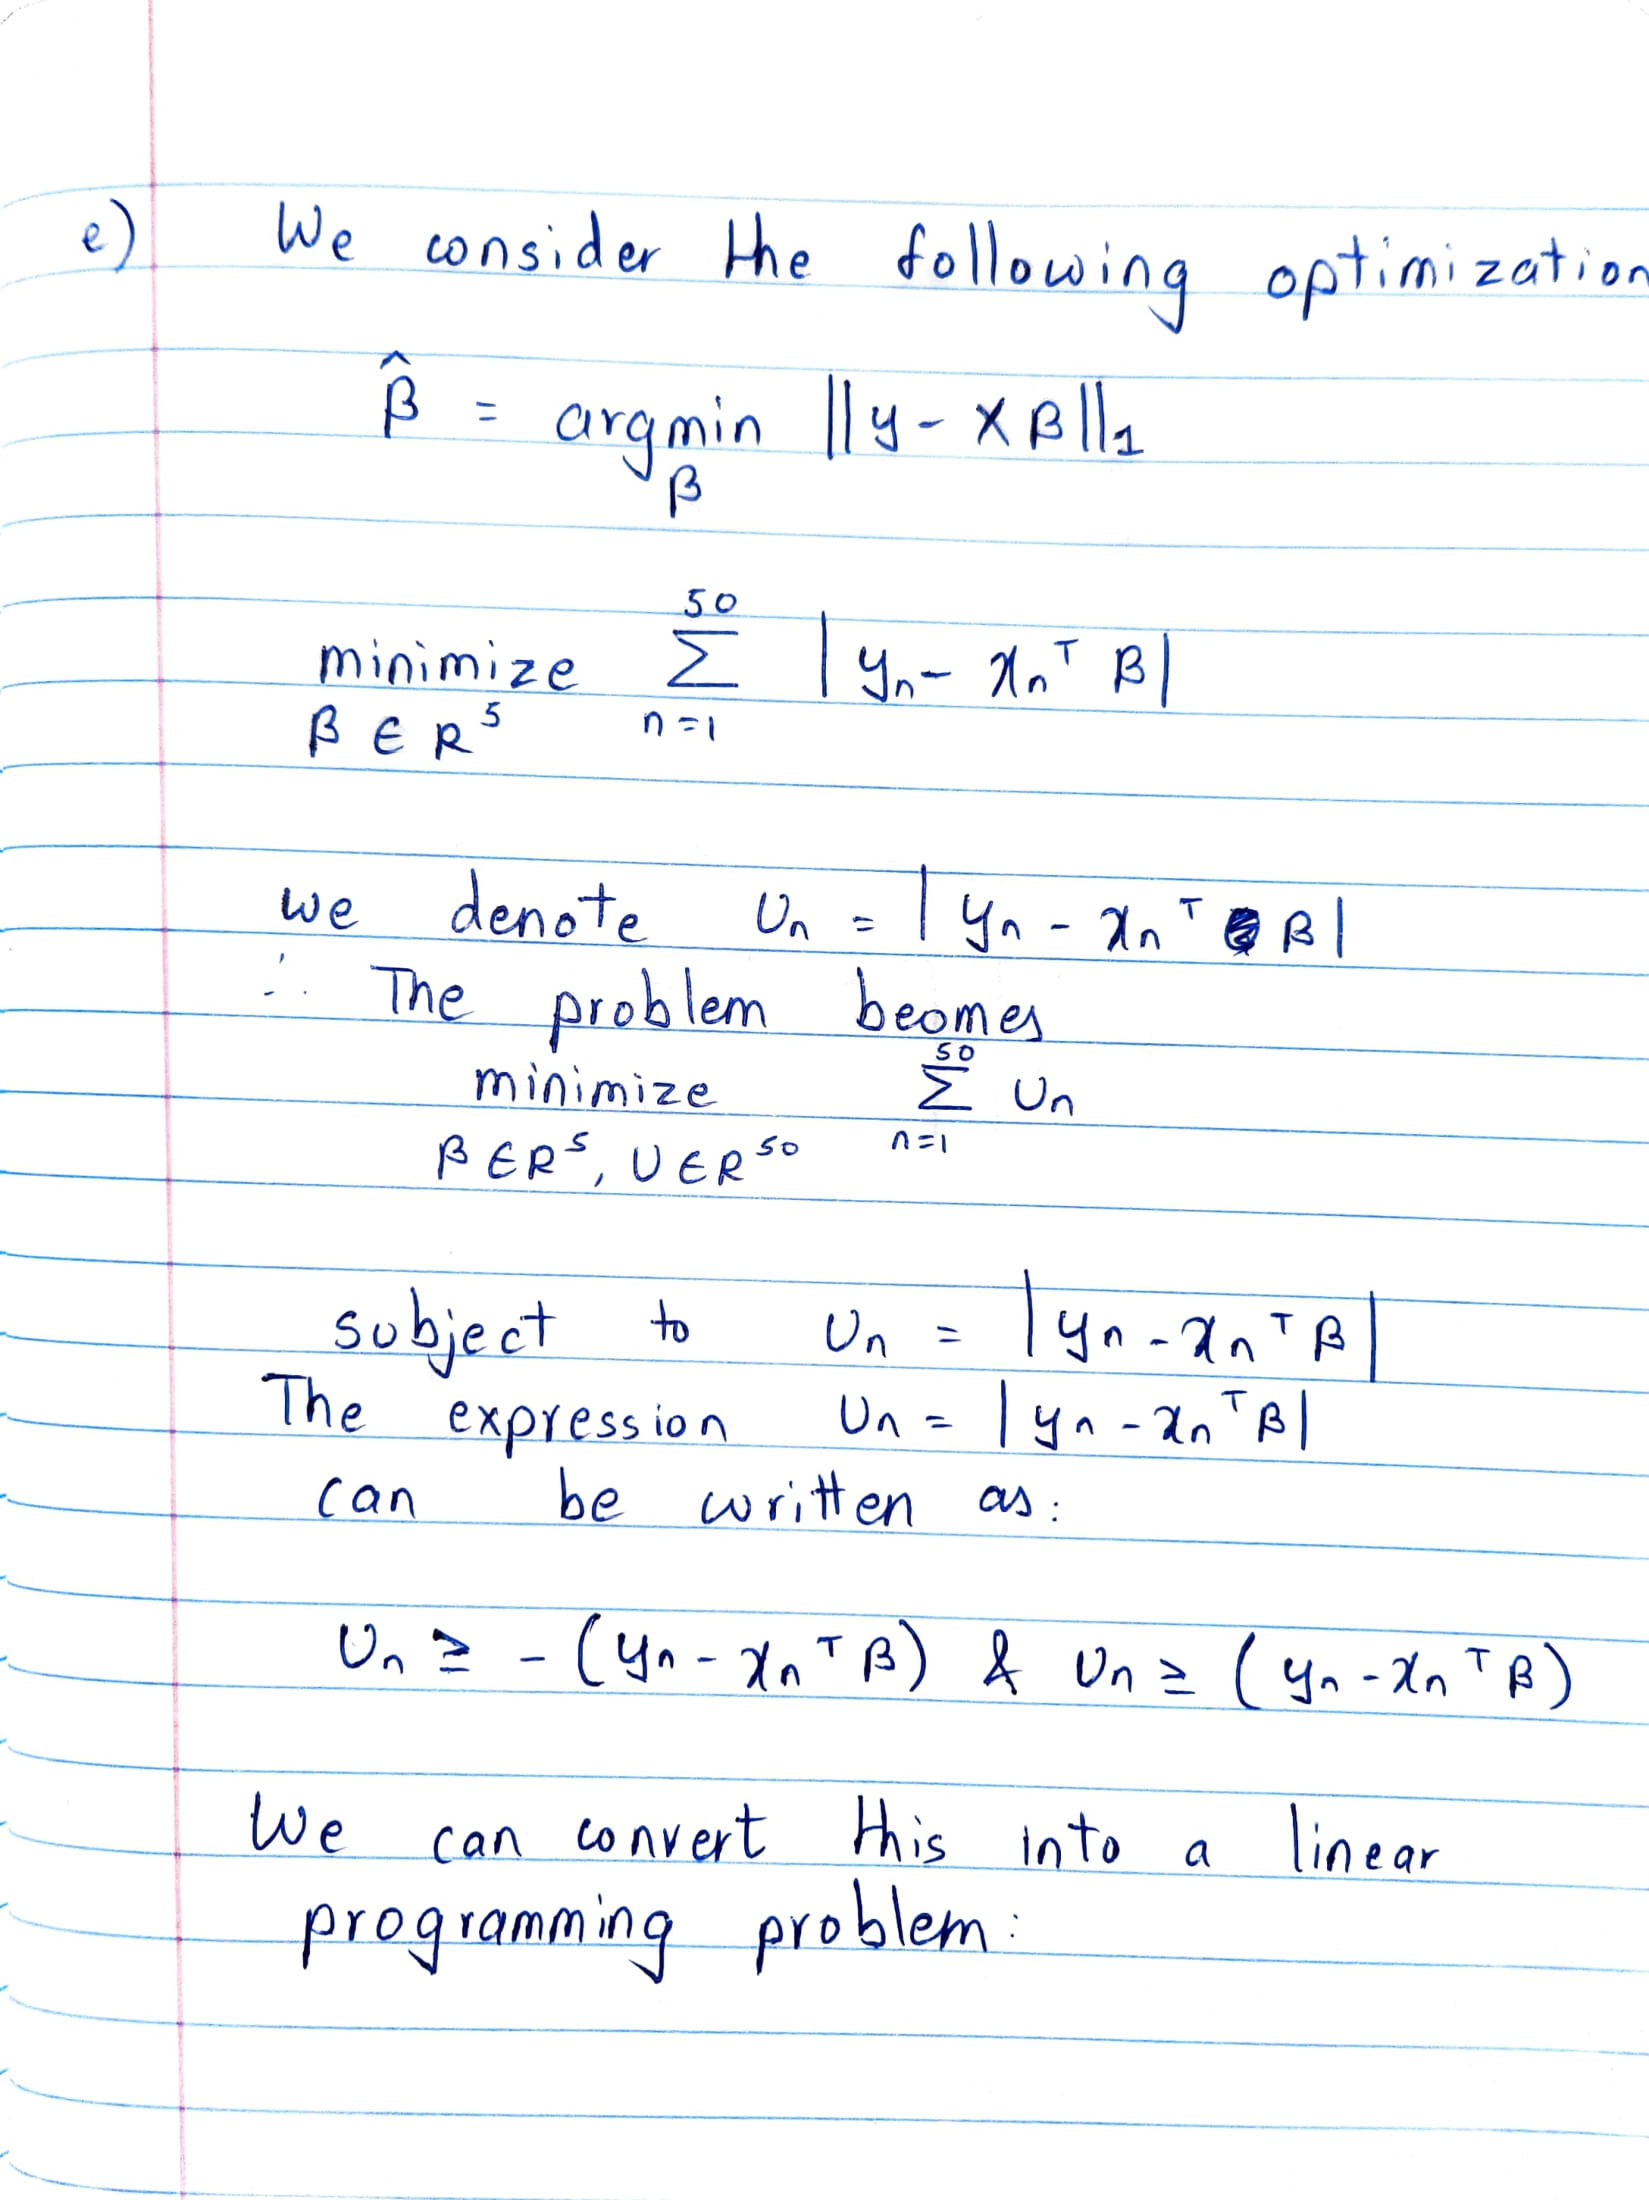 e) We consider the following optimization
β̂ = argmin ||y - Xβ||₁
β
50
minimize Σ |yₙ - xₙᵀ β|
β ∈ R⁵ n=1
we denote Uₙ = |yₙ - xₙᵀ β|
∴ The problem beomes
50
minimize Σ Uₙ
β ∈ R⁵, U ∈ R⁵⁰ n=1
subject to Uₙ = |yₙ - xₙᵀ β|
The expression Uₙ = |yₙ - xₙᵀ β|
can be written as:
Uₙ ≥ - (yₙ - xₙᵀ β) & Uₙ ≥ (yₙ - xₙᵀ β)
We can convert this into a linear
programming problem: